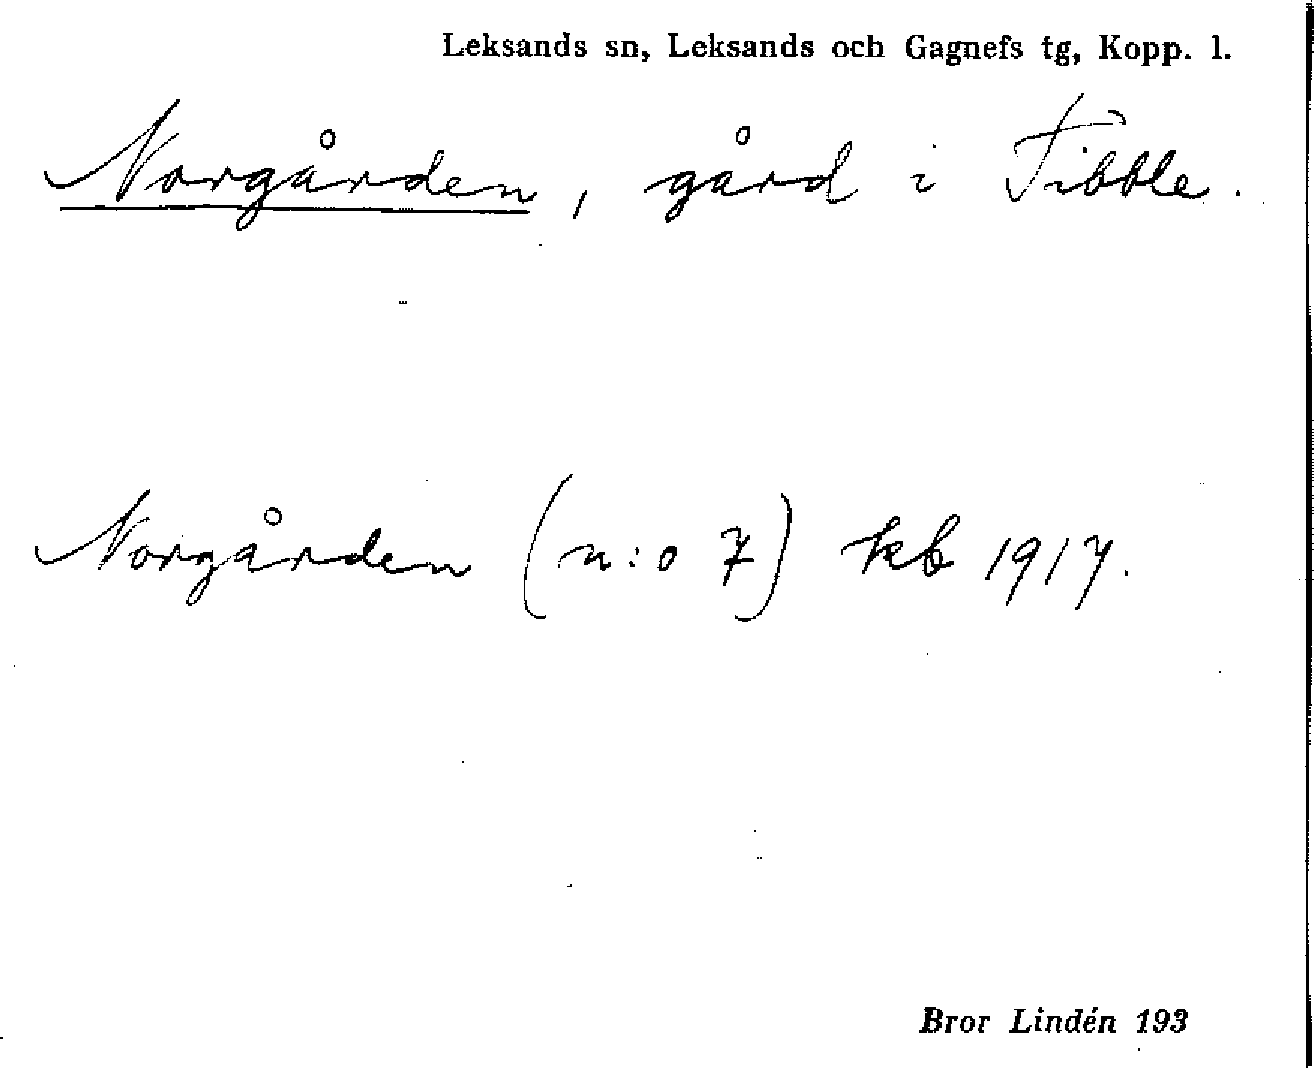 Leksands sn, Leksands och Gagnefs tg, Kopp. l.
Norgården, gård i Tibble.
Norgården (n:o 7) kb 1917.
Bror Lindén 193